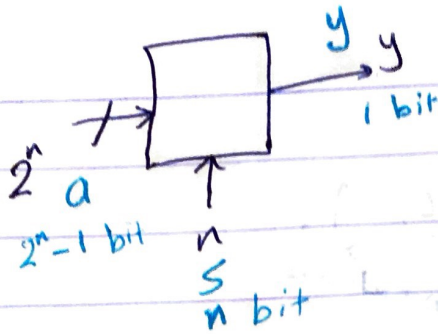 y
y
1 bit
2ⁿ
a
2ⁿ-1 bit
n
S
n bit